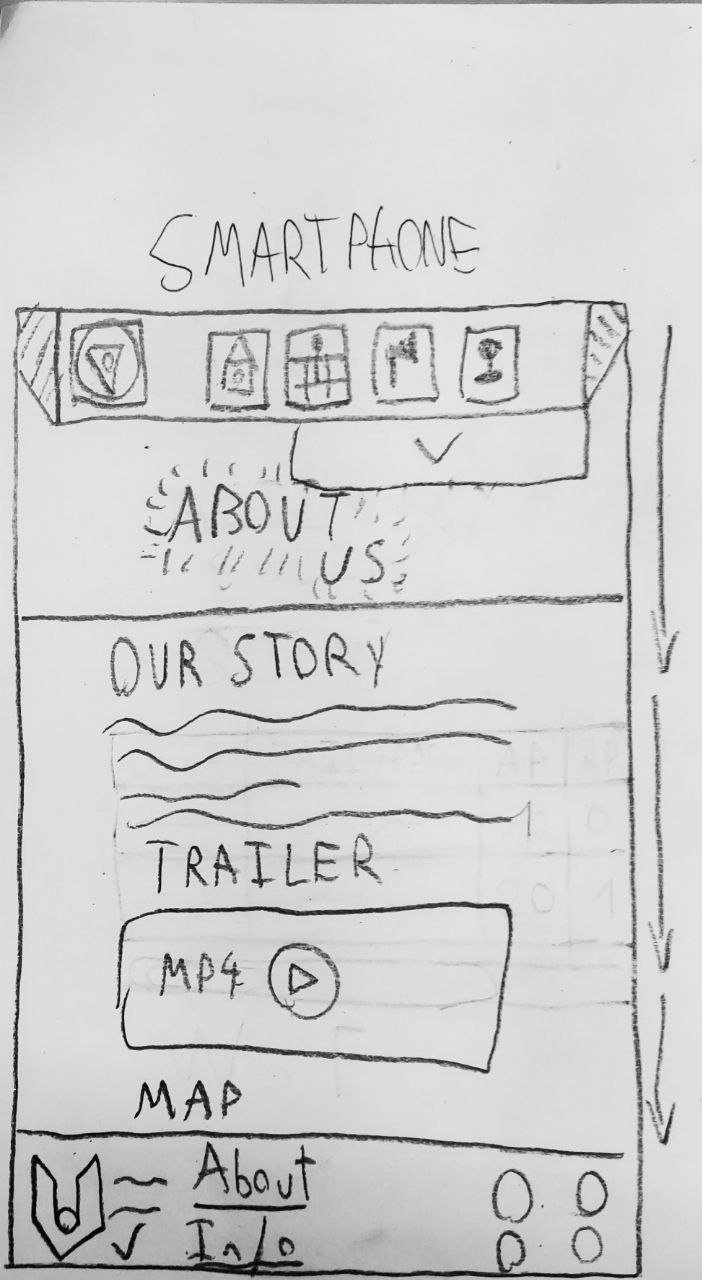 SMARTPHONE
ABOUT
US
OUR STORY
TRAILER
MP4
MAP
About
Info